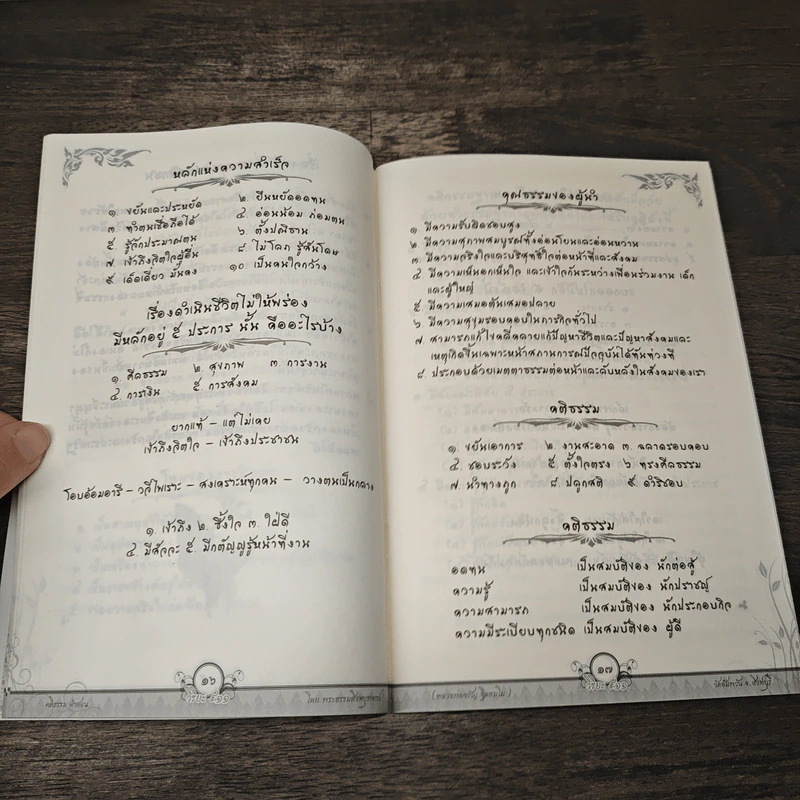 หลักแห่งความสำเร็จ
๑. ขยันและประหยัด ๒. ยืนหยัดอดทน
๓. ทำตนเชื่อถือได้ ๔. อ่อนน้อม ถ่อมตน
๕. รู้จักประมาณตน ๖. ตั้งปณิธาน
๗. เข้าถึงจิตใจผู้อื่น ๘. ไม่โลภ รู้สันโดษ
๙. เด็ดเดี่ยว มั่นคง ๑๐. เป็นคนใจกว้าง
เรื่องดำเนินชีวิตไม่ให้พร่อง
มีหลักอยู่ ๕ ประการ นั้น คืออะไรบ้าง
๑. ศีลธรรม ๒. สุขภาพ ๓. การงาน
๔. การเงิน ๕. การสังคม
ยากแท้ – แต่ไม่เคย
เข้าถึงจิตใจ – เข้าถึงประชาชน
โอบอ้อมอารี – วจีไพเราะ – สงเคราะห์ทุกคน – วางตนเป็นกลาง
๑. เข้าถึง ๒. ซึ้งใจ ๓. ใฝ่ดี
๔. มีสัจจะ ๕. มีกตัญญูรู้หน้าที่งาน
๑๖
โดย พระธรรมสิงหบุราจารย์
คุณธรรมของผู้นำ
๑ มีความรับผิดชอบสูง
๒ มีความสุภาพสมบูรณ์ทั้งอ่อนโยนและอ่อนหวาน
๓ มีความจริงใจและบริสุทธิ์ใจต่อหน้าที่และสังคม
๔ มีความเห็นอกเห็นใจ และเข้าใจกันระหว่างเพื่อนร่วมงาน เด็ก
และผู้ใหญ่
๕ มีความเสมอต้นเสมอปลาย
๖ มีความสุขุมรอบคอบในภารกิจทั่วไป
๗ สามารถแก้ไขคลี่คลายแก้ปัญหาชีวิตและปัญหาสังคมและ
เหตุเกิดขึ้นเฉพาะหน้าสถานการณ์ปัจจุบันได้ทันท่วงที
๘ ประกอบด้วยเมตตาธรรมต่อหน้าและลับหลังในสังคมของเรา
คติธรรม
๑ ขยันเอาการ ๒ งานสะอาด ๓ ฉลาดรอบคอบ
๔ ชอบระวัง ๕ ตั้งใจตรง ๖ ทรงศีลธรรม
๗ นำทางถูก ๘ ปลูกสติ ๙ ดำริชอบ
คติธรรม
อดทน เป็นสมบัติของ นักต่อสู้
ความรู้ เป็นสมบัติของ นักปราชญ์
ความสามารถ เป็นสมบัติของ นักประกอบกิจ
ความมีระเบียบทุกชนิด เป็นสมบัติของ ผู้ดี
๑๗
วัดอัมพวัน จ. สิงห์บุรี